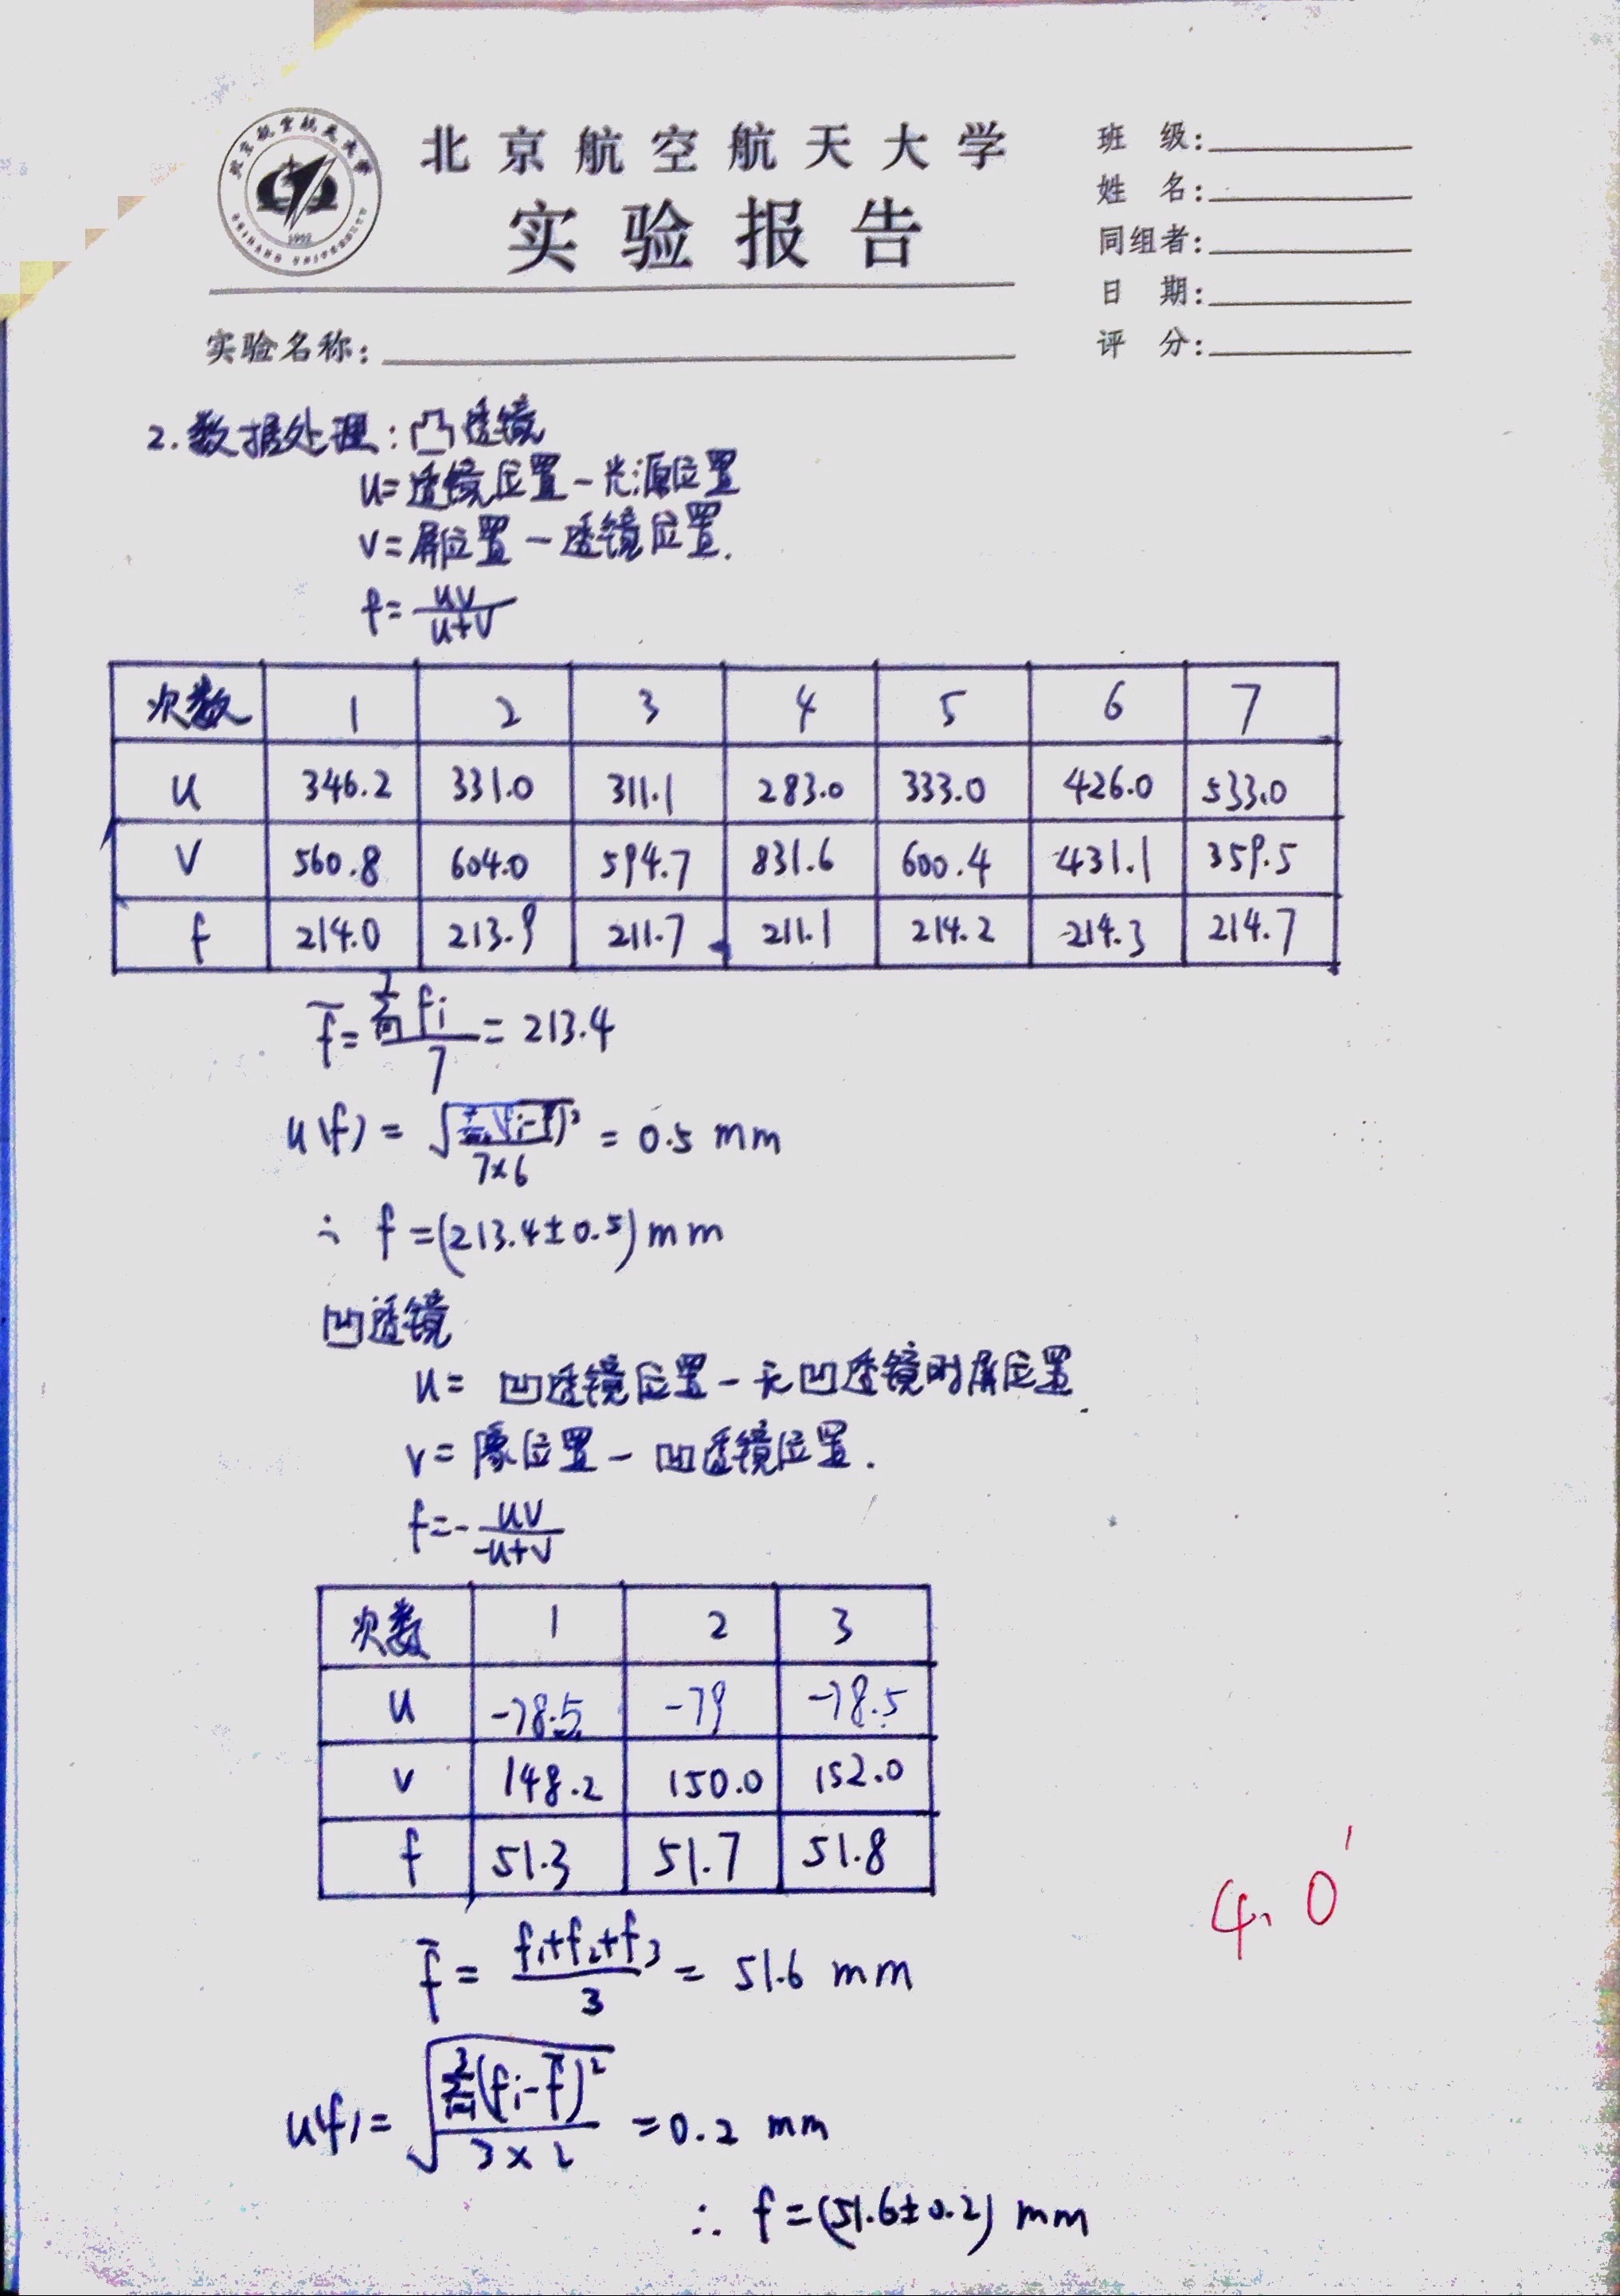 北京航空航天大学
实验报告
班 级:
姓 名:
同组者:
日 期:
评 分:
实验名称:
北京航空航天大学
1952
2.数据处理:凸透镜
u=透镜位置-光源位置
v=屏位置-透镜位置.
f=uv/u+v
次数 1 2 3 4 5 6 7
u 346.2 331.0 311.1 283.0 333.0 426.0 533.0
v 560.8 604.0 594.7 831.6 600.4 431.1 359.5
f 214.0 213.9 211.7 211.1 214.2 214.3 214.7
f̄=∑fi/7=213.4
u(f)=√∑(fi-f̄)²/7×6=0.5 mm
∴ f=(213.4±0.5)mm
凹透镜
u= 凹透镜位置-无凹透镜时屏位置
v=像位置-凹透镜位置.
f=-uv/-u+v
次数 1 2 3
u -78.5 -79 -78.5
v 148.2 150.0 152.0
f 51.3 51.7 51.8
f̄=f₁+f₂+f₃/3=51.6 mm
u(f)=√∑(fi-f̄)²/3×2=0.2 mm
∴ f=(51.6±0.2) mm
4.0'